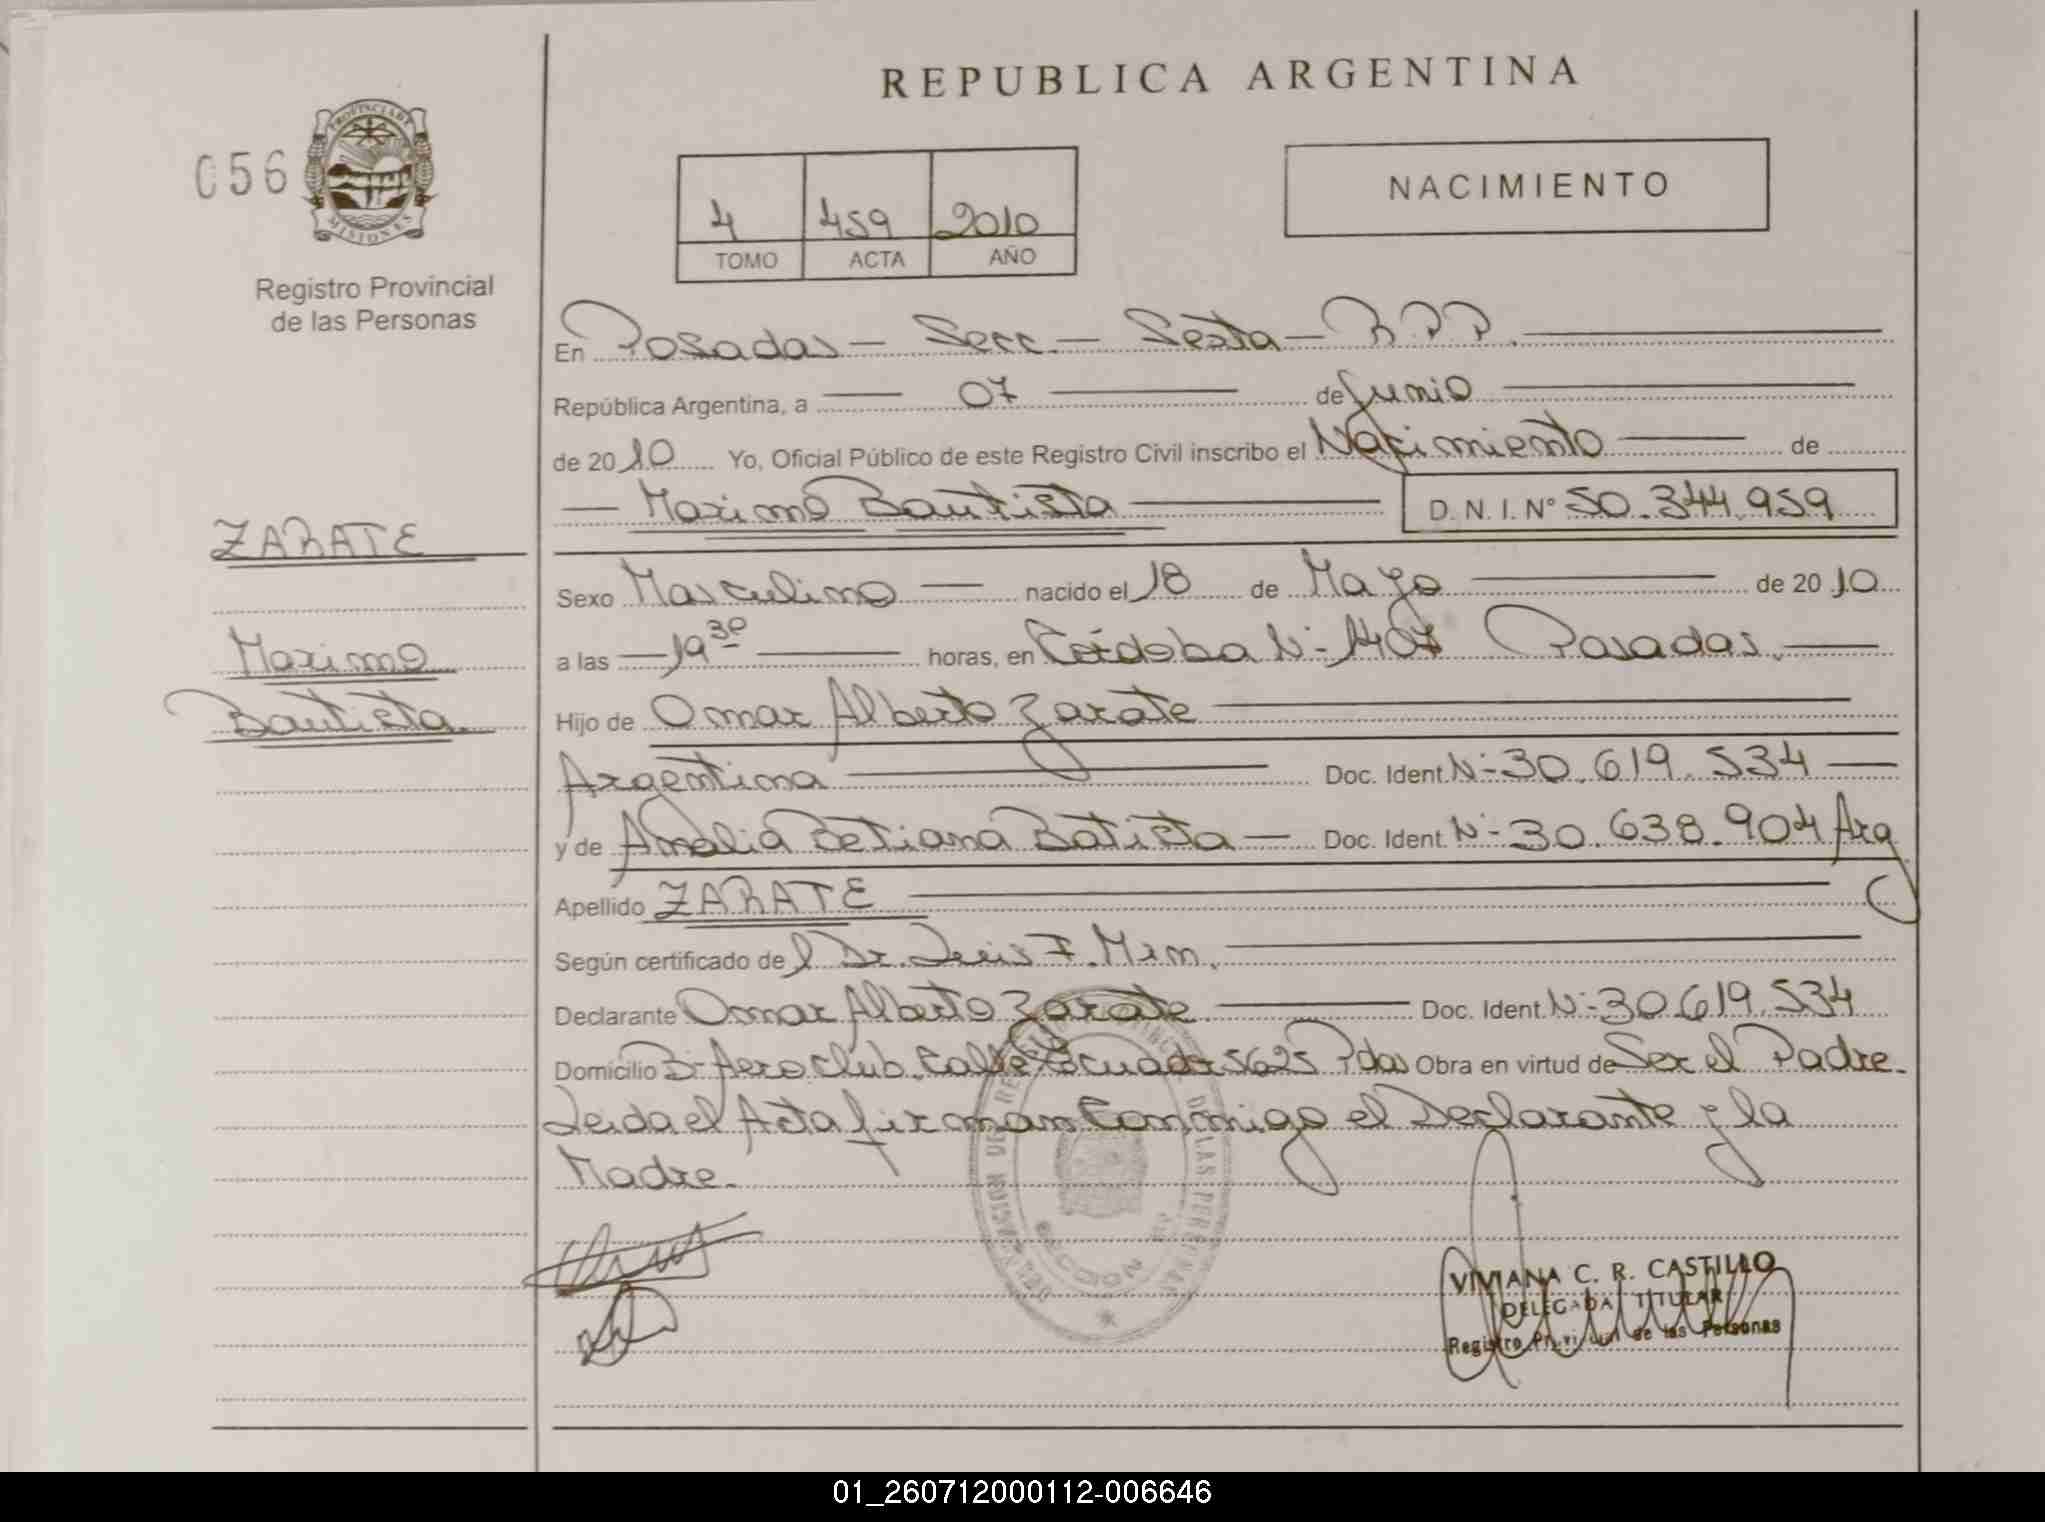 REPUBLICA ARGENTINA
056
PROVINCIA DE MISIONES
Registro Provincial
de las Personas
4 459 2010
TOMO ACTA AÑO
NACIMIENTO
En Posadas – Secc. – Sexta – R.P.P.
República Argentina, a — 07 — de Junio
de 2010 Yo, Oficial Público de este Registro Civil inscribo el Nacimiento — de
— Maximo Bautista — D. N. I. Nº 50.344.959
ZARATE
Maximo
Bautista
Sexo Masculino — nacido el 18 de Mayo — de 2010
a las — 19 30 — horas, en Córdoba Nº 1407 Posadas. —
Hijo de Omar Alberto Zarate —
Argentina — Doc. Ident. Nº 30.619.534 —
y de Amalia Betiana Batista — Doc. Ident. Nº 30.638.904 Arg
Apellido ZARATE
Según certificado del Dr. Luis F.
Declarante Omar Alberto Zarate — Doc. Ident. Nº 30.619.534
Domicilio Bº Aeroclub. Calle Ecuador 5625 Pdas Obra en virtud de Ser el Padre.
Leida el Acta firman Conmigo el Declarante y la
Madre.
DE LAS PERSONAS
SECCION
VIVIANA C. R. CASTILLO
DELEGADA TITULAR
Registro Provincial de las Personas
01_260712000112-006646